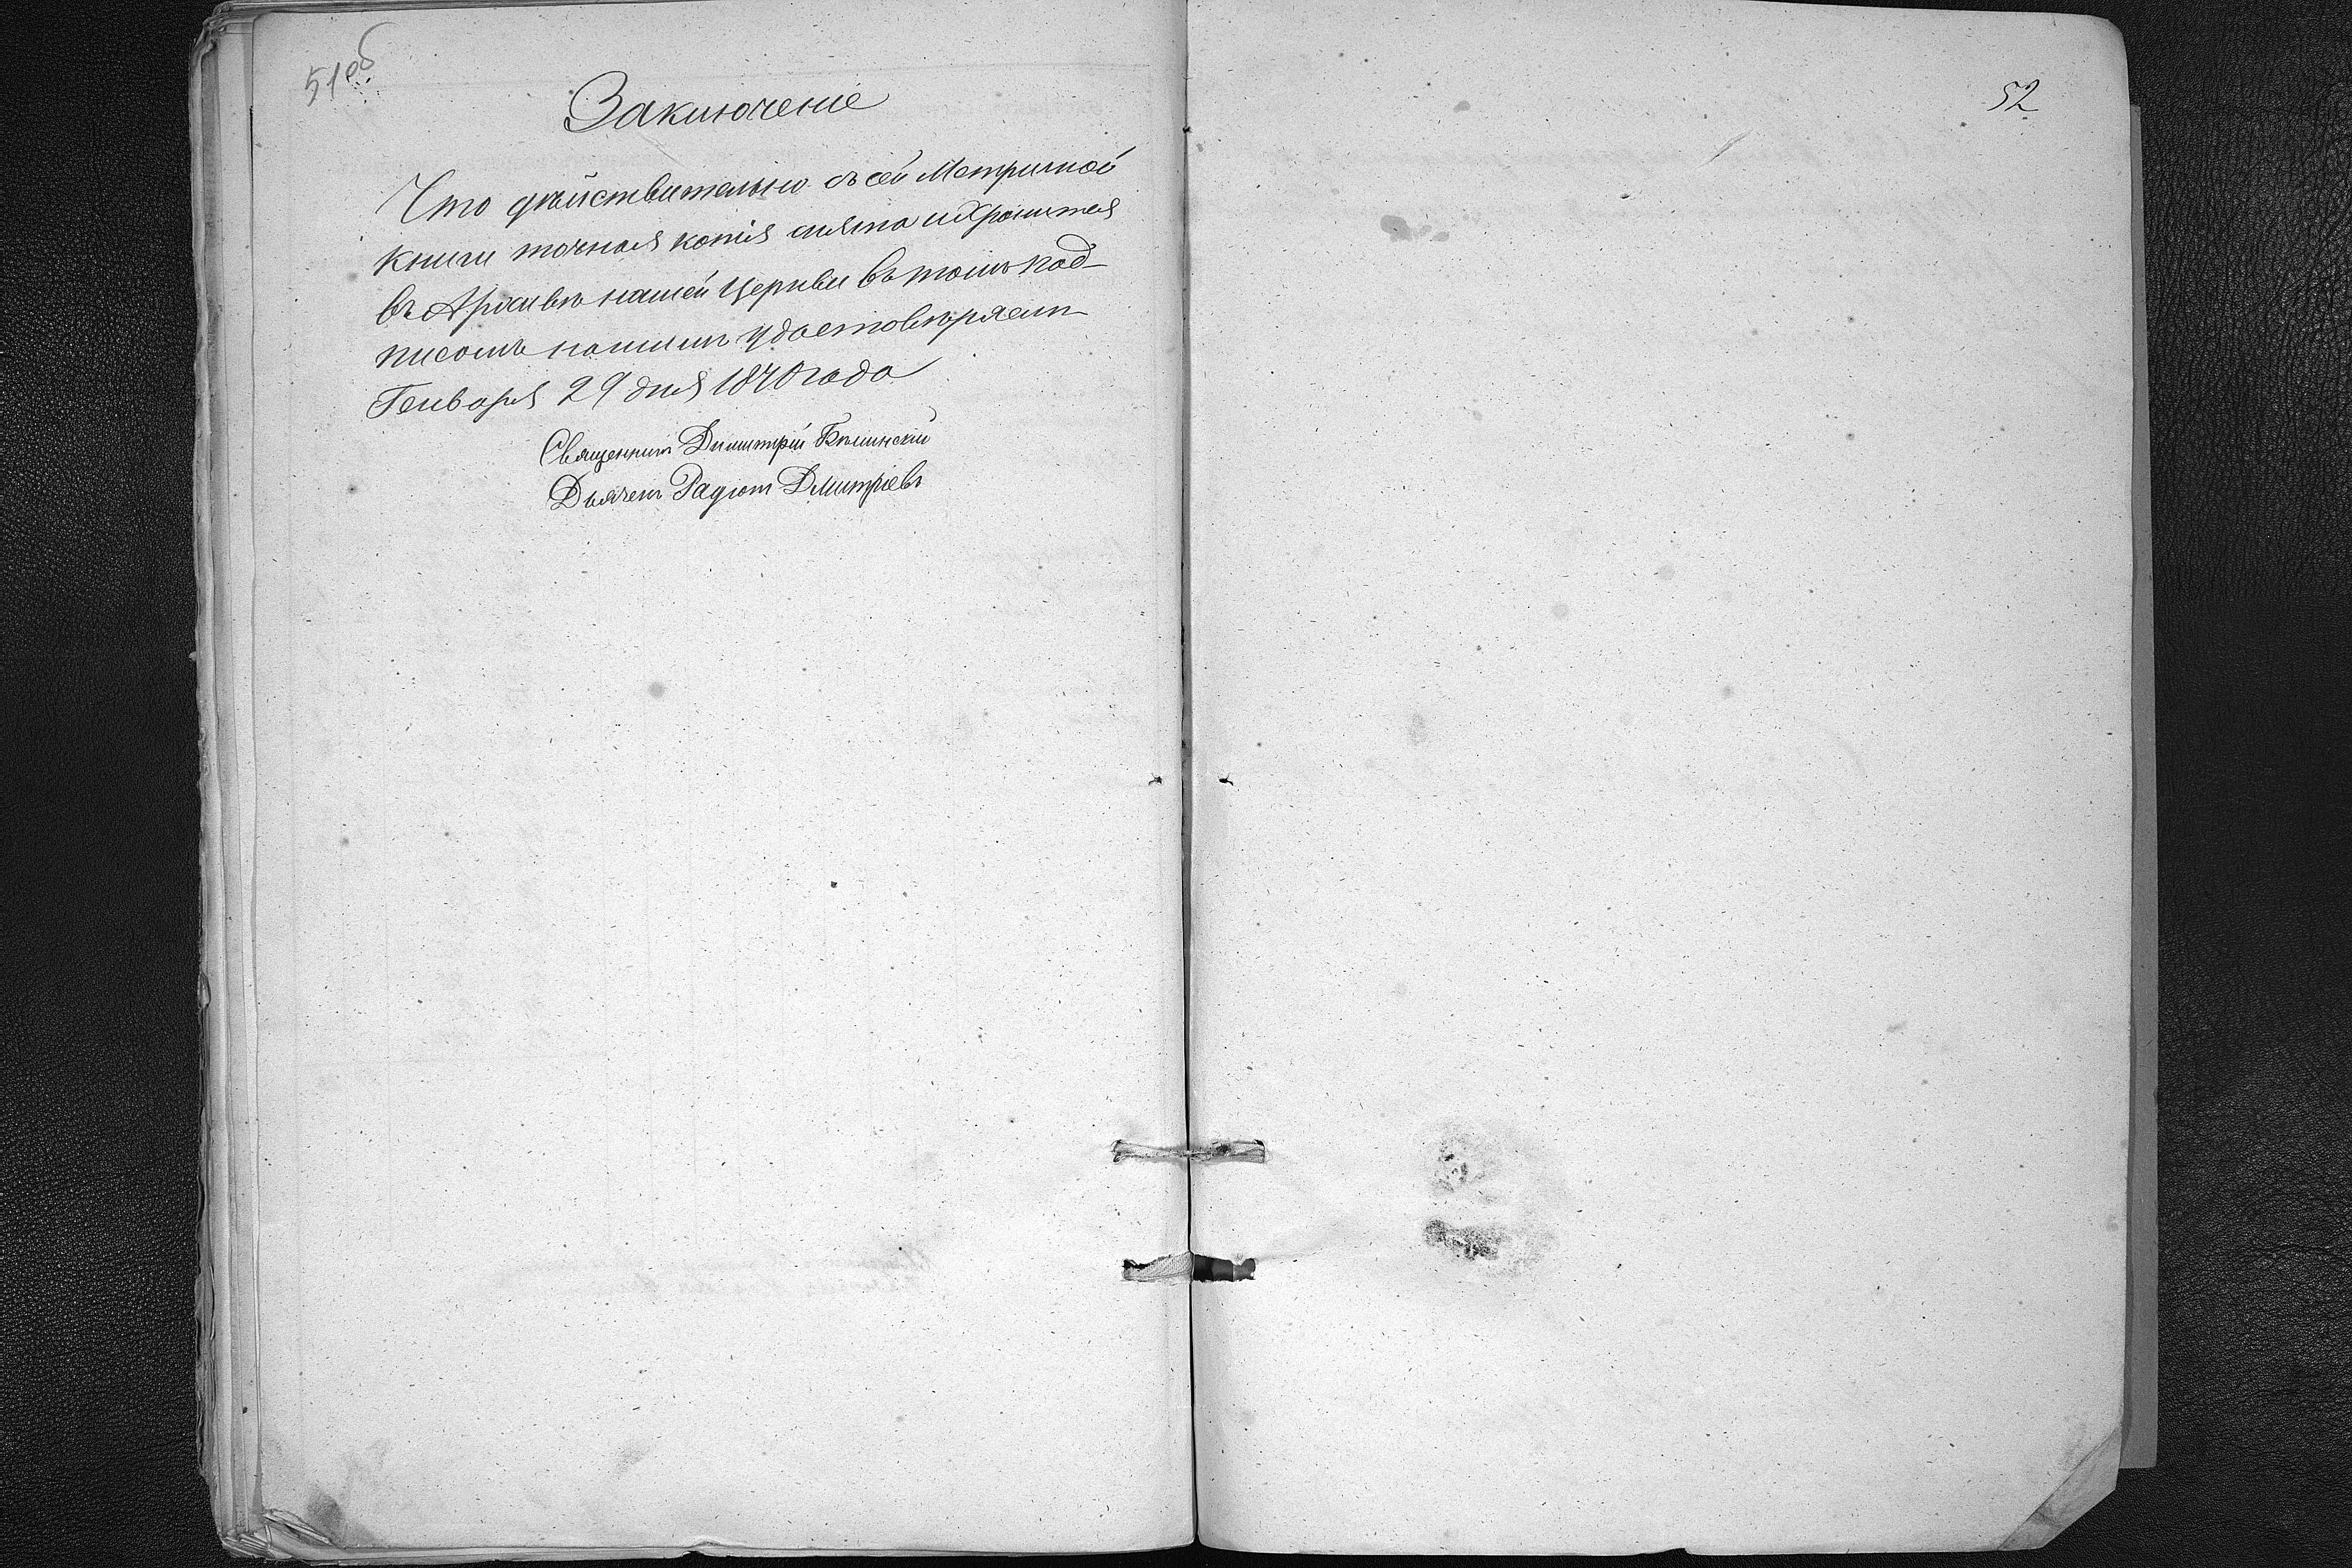 51 об
Заключеніе
Что дѣйствительно съ сей Метричной
книги точная копія снята и хранится
въ Архивѣ нашей Церкви въ томъ под-
писомъ нашимъ удостовѣряем
Генваря 29 дня 1870 года
Священник Димитрій Бѣлинскій
Дьячек Дмитріевъ
52